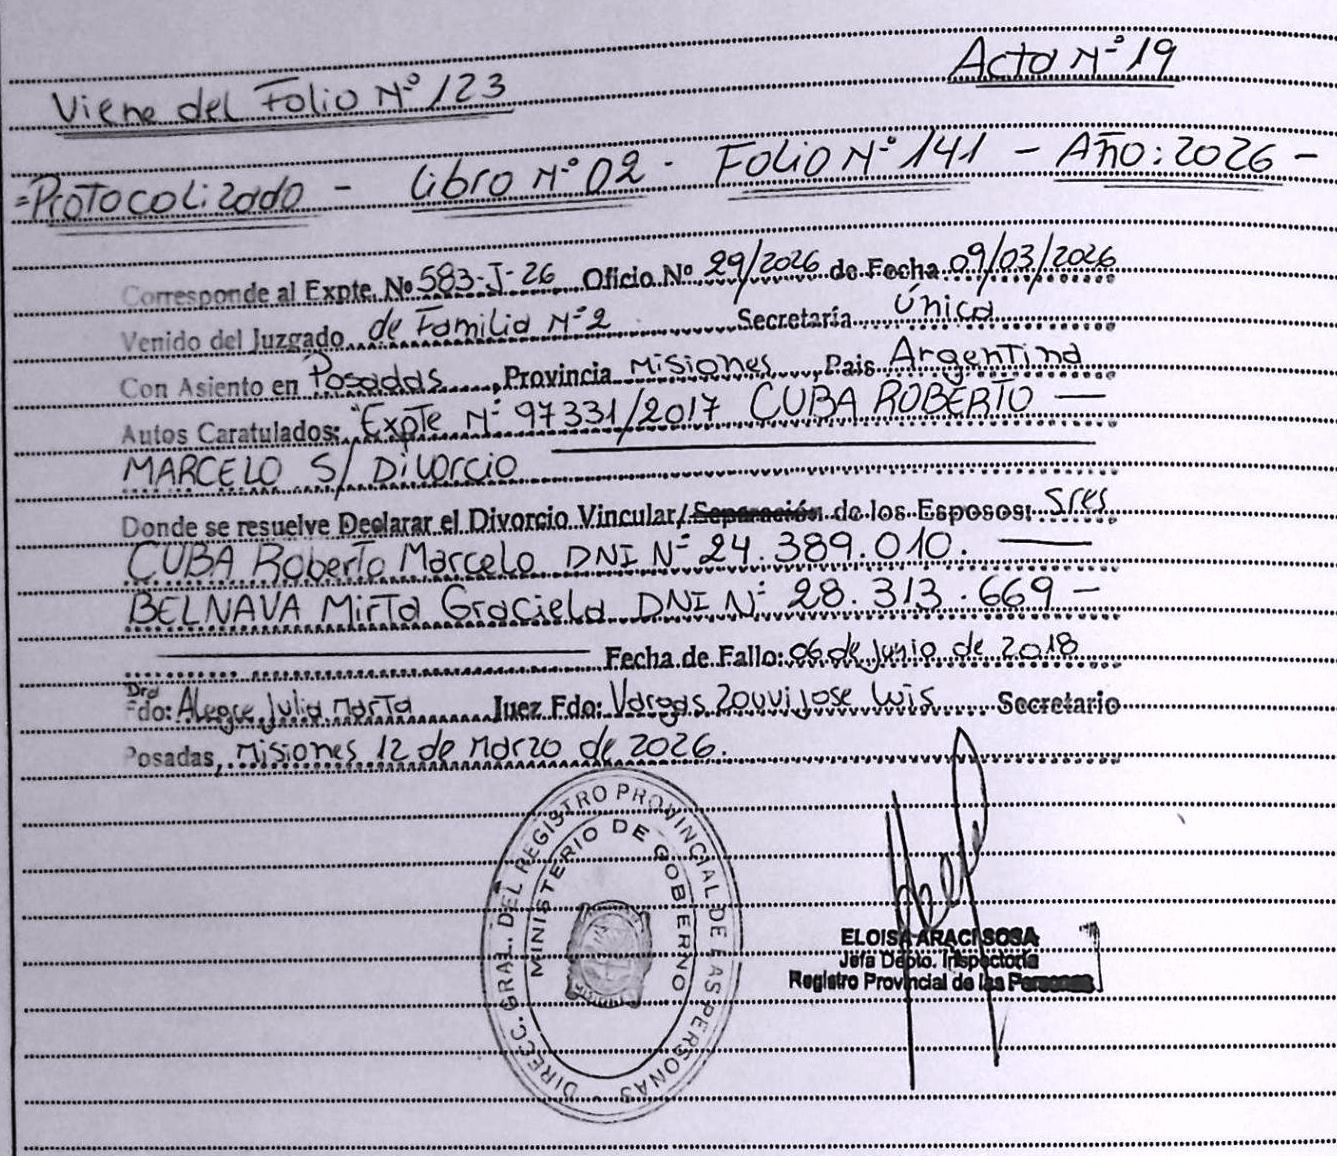 Acta N° 19
Viene del Folio N° 123
=Protocolizado - Libro N° 02 - Folio N° 141 - Año: 2026 -
Corresponde al Expte. No 583-J-26 Oficio No. 29/2026 de Fecha 09/03/2026
Venido del Juzgado de Familia N° 2 Secretaría Única
Con Asiento en Posadas, Provincia Misiones, Pais Argentina
Autos Caratulados: "Expte N° 97331/2017 CUBA ROBERTO —
MARCELO S/ Divorcio
Donde se resuelve Declarar el Divorcio Vincular/Separación de los Esposos: Sres
CUBA Roberto Marcelo DNI N° 24.389.010. —
BELNAVA Mirta Graciela DNI N° 28.313.669 —
Fecha de Fallo: 06 de Junio de 2018
Dra
Fdo: Alegre Julia Marta Juez Fdo: Vargas Zouvi Jose Luis Secretario
Posadas, Misiones 12 de Marzo de 2026.
DIRECC. GRAL. DEL REGISTRO PROVINCIAL DE LAS PERSONAS
MINISTERIO DE GOBIERNO
ELOISA ARACI SOSA
Jefa Depto. Inspectoria
Registro Provincial de las Personas